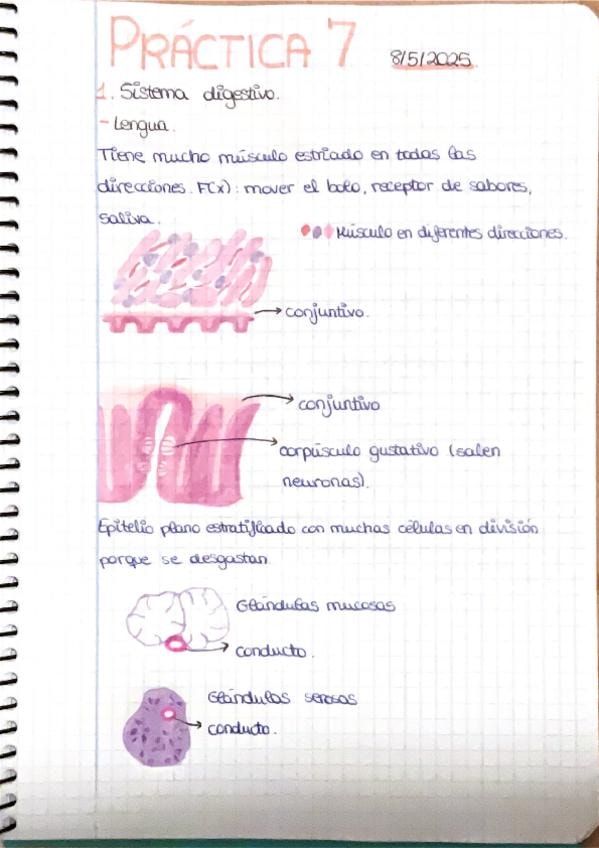 PRÁCTICA 7
8/5/2025.
1. Sistema digestivo.
- Lengua.
Tiene mucho músculo estriado en todas las
direcciones. F(x): mover el bolo, receptor de sabores,
saliva.
Músculo en diferentes direcciones.
conjuntivo.
conjuntivo
corpúsculo gustativo (salen
neuronas).
Epitelio plano estratificado con muchas células en división
porque se desgastan
Glándulas mucosas
conducto.
Glándulas serosas
conducto.